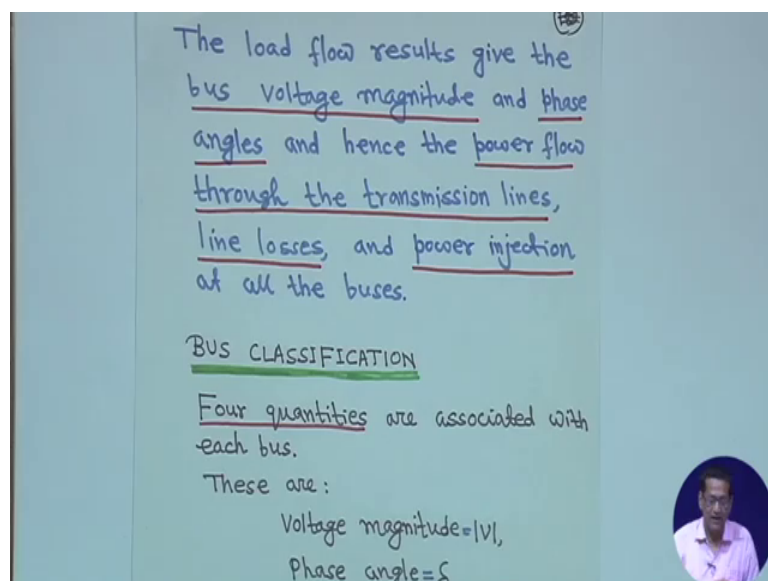 The load flow results give the
bus voltage magnitude and phase
angles and hence the power flow
through the transmission lines,
line losses, and power injection
at all the buses.
BUS CLASSIFICATION
Four quantities are associated with
each bus.
These are:
Voltage magnitude=|V|,
Phase angle=δ